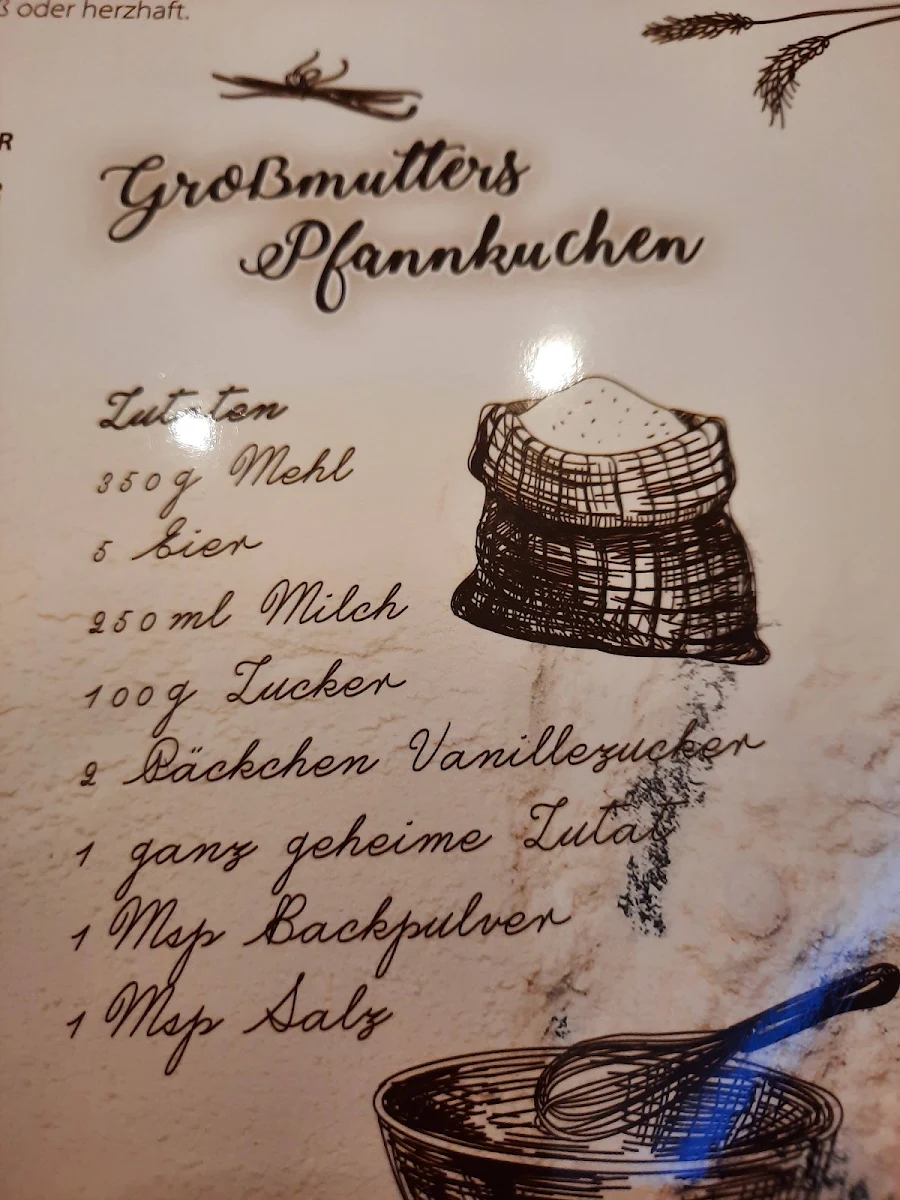 ß oder herzhaft.
R
Großmutters
Pfannkuchen
Zutaten
350g Mehl
5 Eier
250ml Milch
100g Zucker
2 Päckchen Vanillezucker
1 ganz geheime Zutat
1 Msp Backpulver
1 Msp Salz